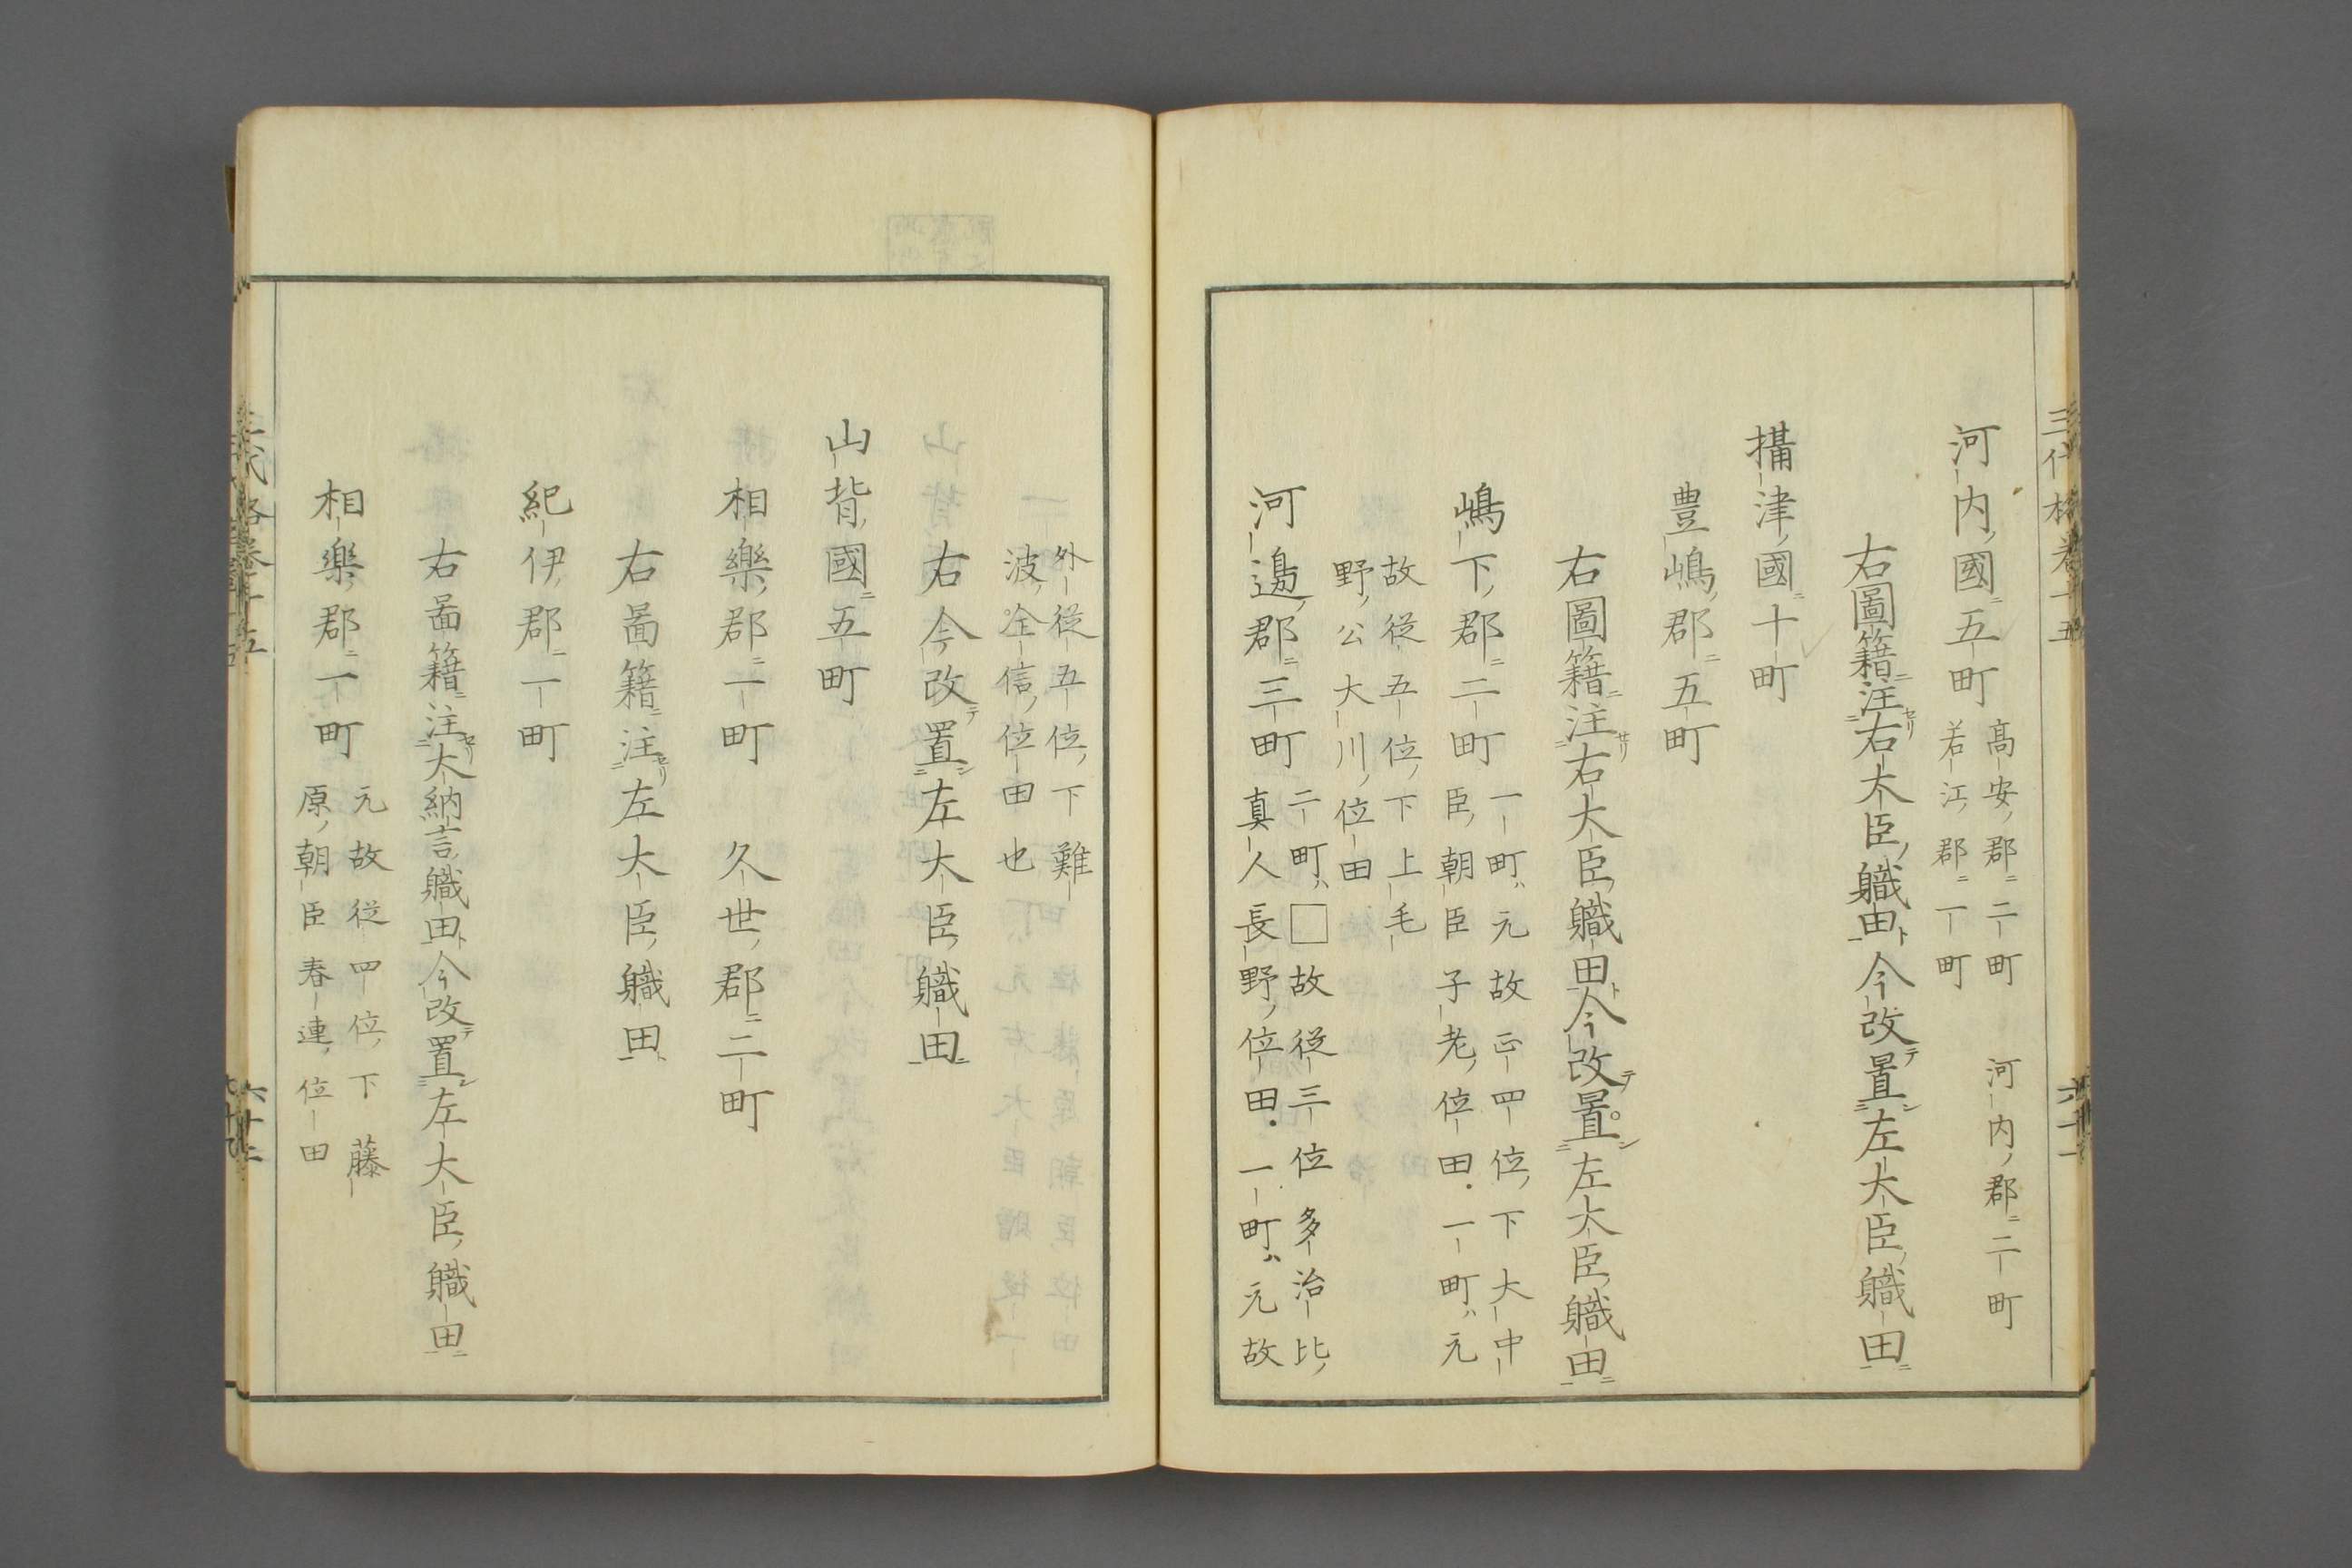 河内國五町
高安郡二町　河内郡二町
若江郡一町
右圖籍注右大臣職田今改置左大臣職田
攝津國十町
豊嶋郡五町
右圖籍注右大臣職田今改置左大臣職田
嶋下郡二町
一町元故正四位下大中
臣朝臣子老位田一町元
故従五位下上毛
野公大川位田
河邉郡三町
二町□故従三位多治比
真人長野位田一町元故
外従五位下難
波全信位田也
右今改置左大臣職田
山背國五町
相樂郡二町　久世郡二町
右啚籍注左大臣職田
紀伊郡一町
右啚籍注大納言職田今改置左大臣職田
相樂郡一町
元故従四位下藤
原朝臣春連位田